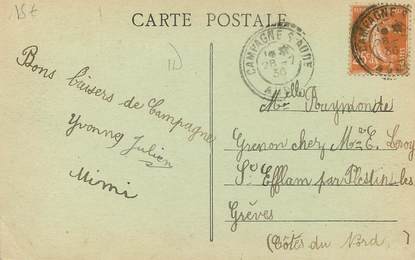 15€
CARTE POSTALE
CAMPAGNE S AUDE
28 -7
30
Bons baisers de Campagne
Yvonne Julien
Mimi
Melle Raymonde
Grenon chez Me E. Leroy
St Efflam par Plestin les
Grèves
(Côtes du Nord)